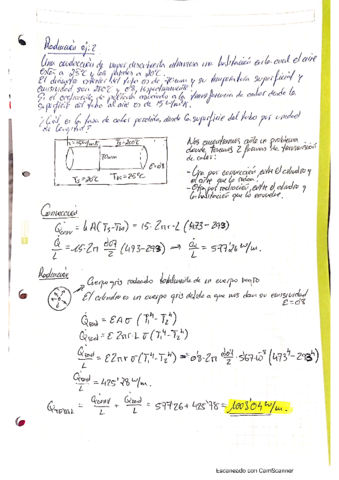 Radiación ej:2
Una conducción de vapor descubierta atraviesa una habitación en la cual el aire
está a 25°C y las paredes a 20°C.
El diámetro exterior del es de 70mm y su temperatura superficial y
emisividad son 200°C y 0'8, respectivamente.
Si el coeficiente de película asociado a la transferencia de calor desde la
superficie del tubo al aire es de 15 W/m²K.
¿Cuál es la tasa de calor perdida desde la superficie del tubo por unidad
de longitud?
Ts=200°C
70mm
ε=0'8
T∞=25°C
Nos encontramos ante un problema
donde tenemos 2 formas de transmisión
de calor:
- Una por convección, entre el cilindro y
el aire que lo rodea.
- Otra por radiación, entre el cilindro y
la habitación que lo envuelve.
Convección
Q̇conv = h A (Ts-T∞) = 15· 2πr·L (473-298)
Q̇/L = 15·2π 0'07/2 (473-298) ⇒ Q̇/L = 577'26 W/m.
Radiación
Cuerpo gris rodeado totalmente de un cuerpo negro
El cilindro es un cuerpo gris debido a que nos dan su emisividad
ε=0'8
Q̇rad = εAσ (T₁⁴-T₂⁴)
Q̇rad = ε 2πr·L σ (T₁⁴-T₂⁴)
Q̇rad/L = ε 2πr σ (T₁⁴-T₂⁴) = 0'8·2π 0'07/2 ·5'67·10⁻⁸ (473⁴-293⁴)
Q̇rad/L = 425'78 W/m.
Q̇TOTAL = Q̇conv/L + Q̇rad/L = 577'26 + 425'78 = 1003'04 W/m.
Escaneado con CamScanner